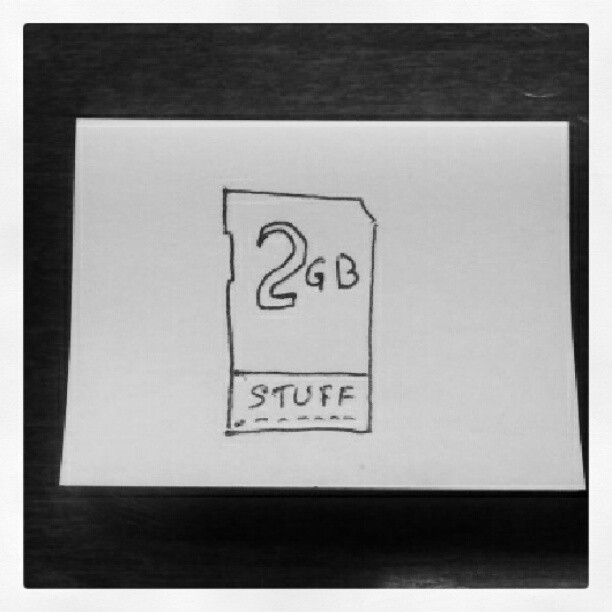 2GB
STUFF